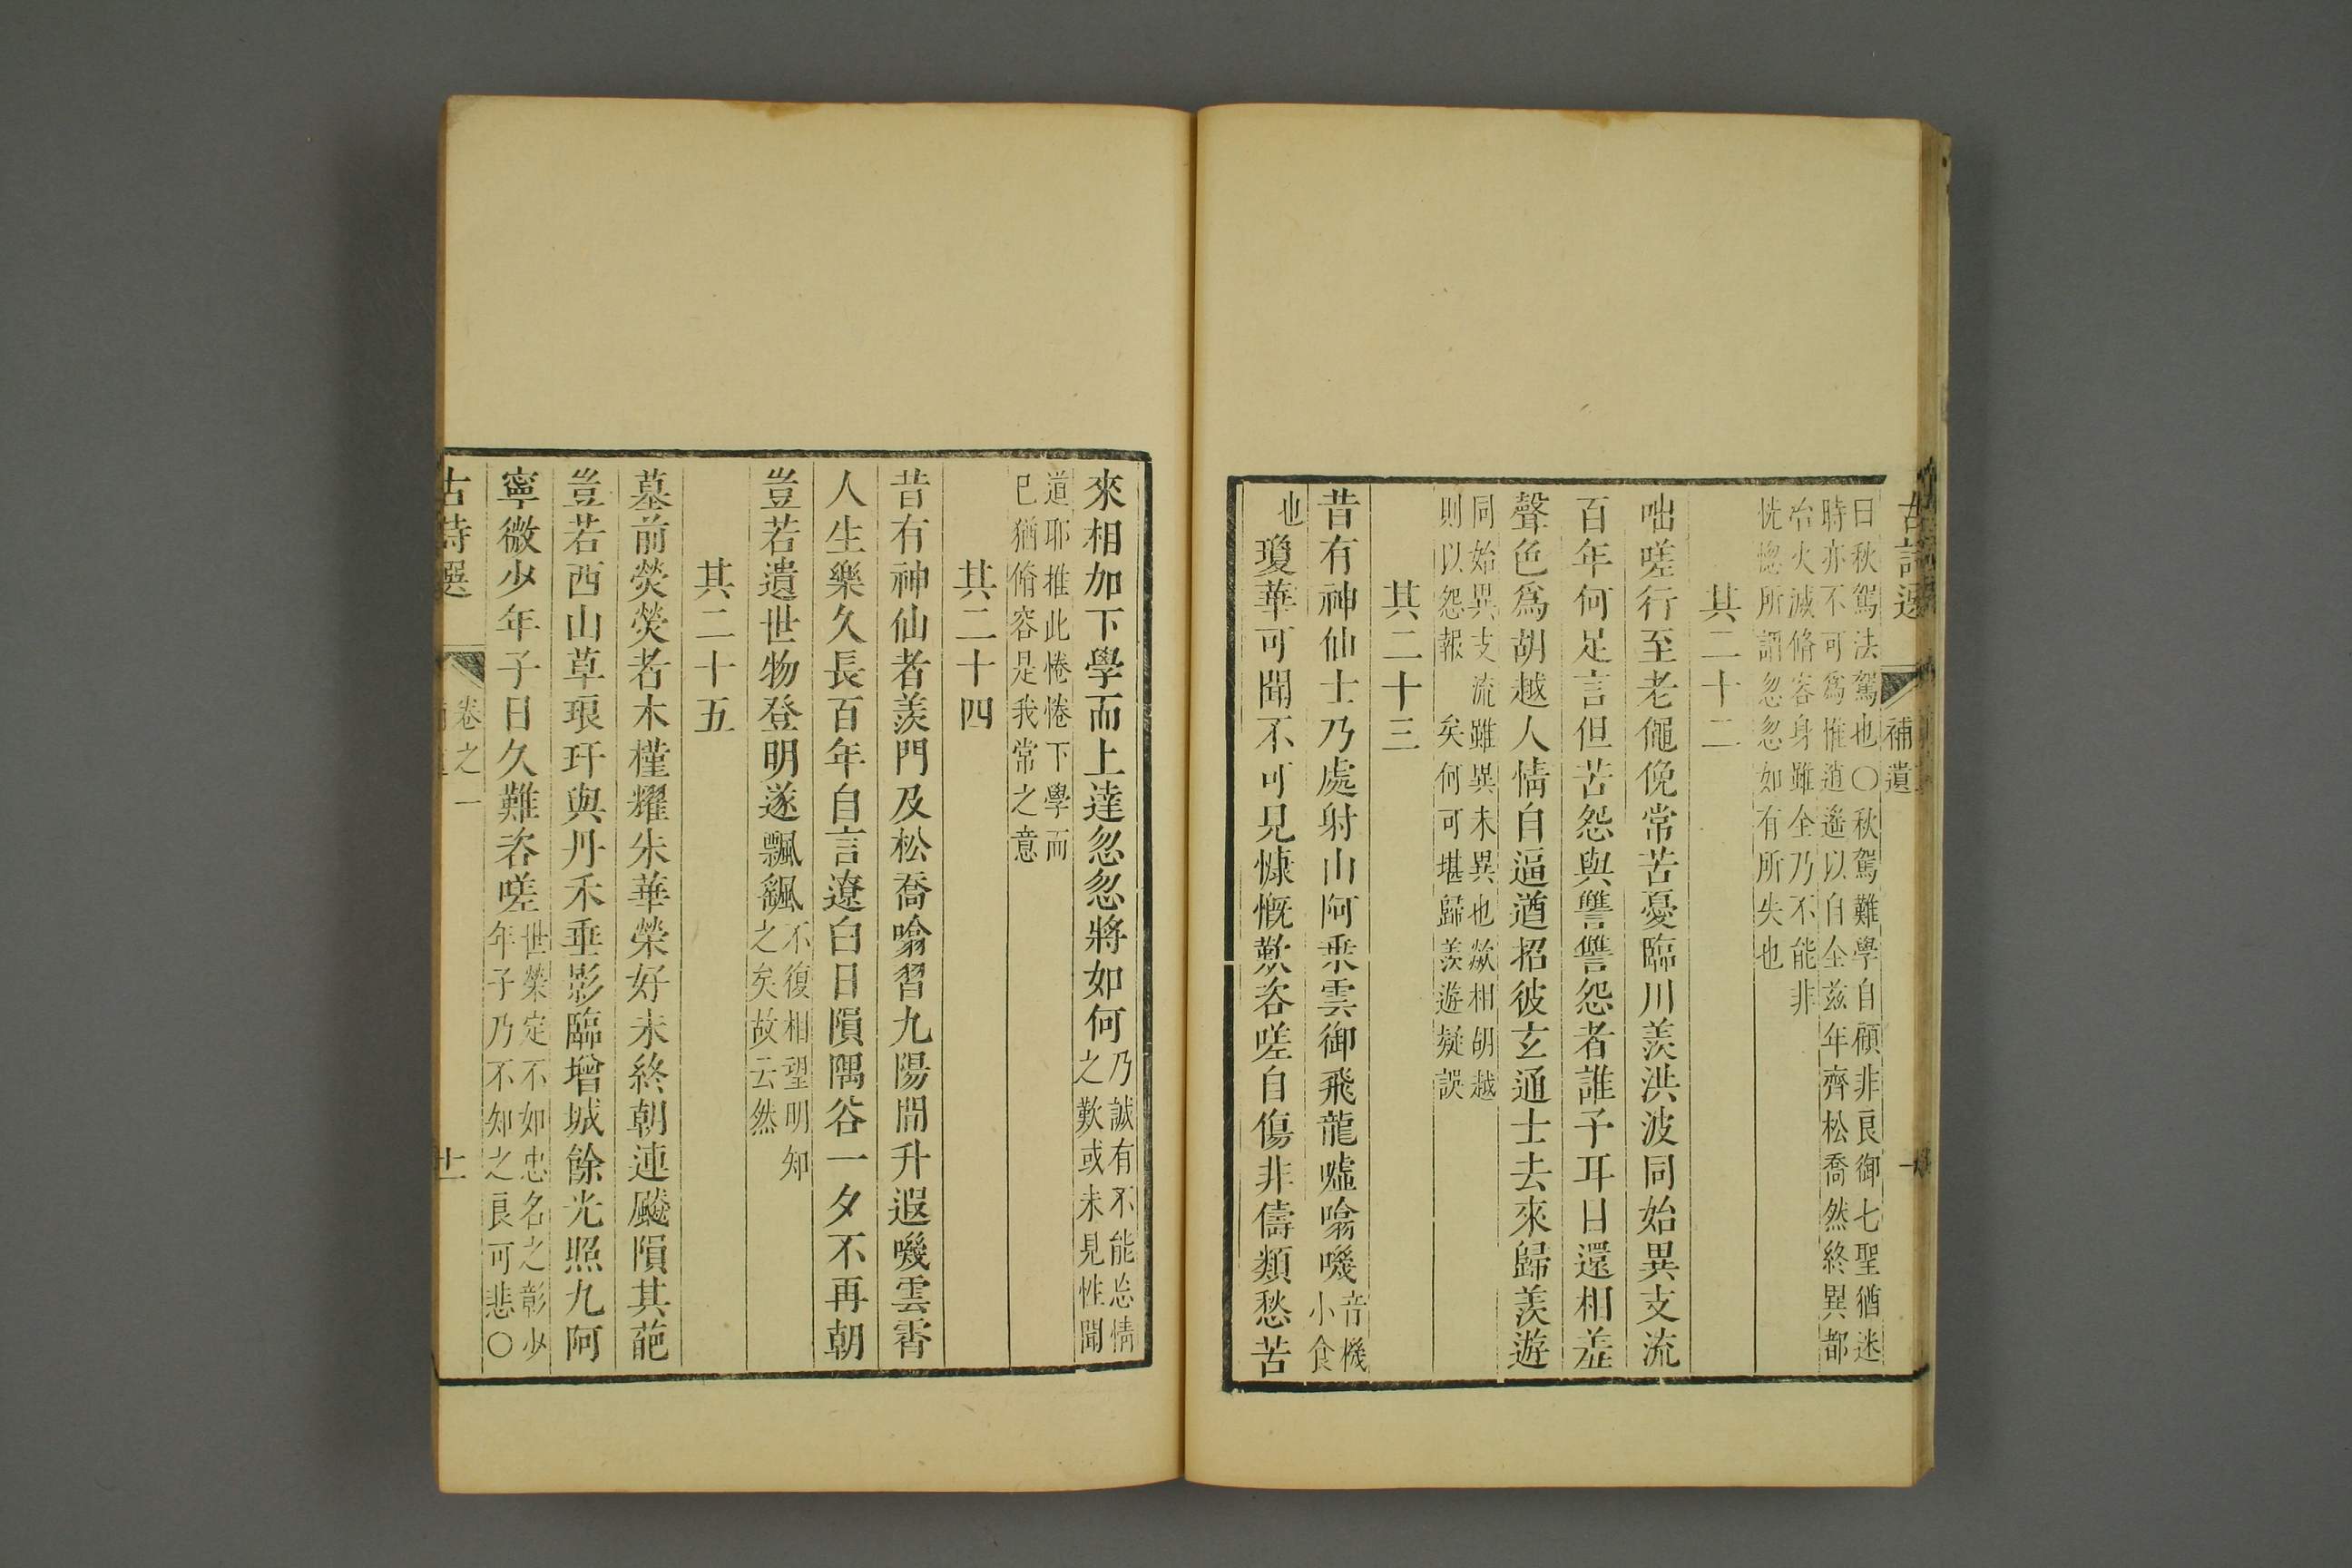 古詩選 補遺
曰秋駕法駕也○秋駕難學自顧非良御七聖猶迷
時亦不可爲惟逍遙以自全茲年齊松喬然終異都
冶火滅脩容身雖全乃不能非
恍惚所謂忽忽如有所失也
其二十二
咄嗟行至老僶俛常苦憂臨川羨洪波同始異支流
百年何足言但苦怨與讐讐怨者誰子耳目還相羞
聲色爲胡越人情自逼遒招彼玄通士去來歸羨遊
同始異支流雖異未異也歘相胡越
則以怨報矣何可堪歸羨遊疑誤
其二十三
昔有神仙士乃處射山阿乘雲御飛龍噓噏嘰
音機
小食
也
瓊華可聞不可見慷慨歎咨嗟自傷非儔類愁苦
來相加下學而上達忽忽將如何
乃誠有不能忘情
之歎或未見性聞
道耶推此惓惓下學而
已猶脩容是我常之意
其二十四
昔有神仙者羨門及松喬噏習九陽間升遐嘰雲霄
人生樂久長百年自言遼白日隕隅谷一夕不再朝
豈若遺世物登明遂飄颻
不復相望明知
之矣故云然
其二十五
墓前熒熒者木槿耀朱華榮好未終朝連飈隕其葩
豈若西山草琅玕與丹禾垂影臨增城餘光照九阿
寧微少年子日久難咨嗟
世榮定不如忠名之彰少
年子乃不知之良可悲○
古詩選 卷之一
十一